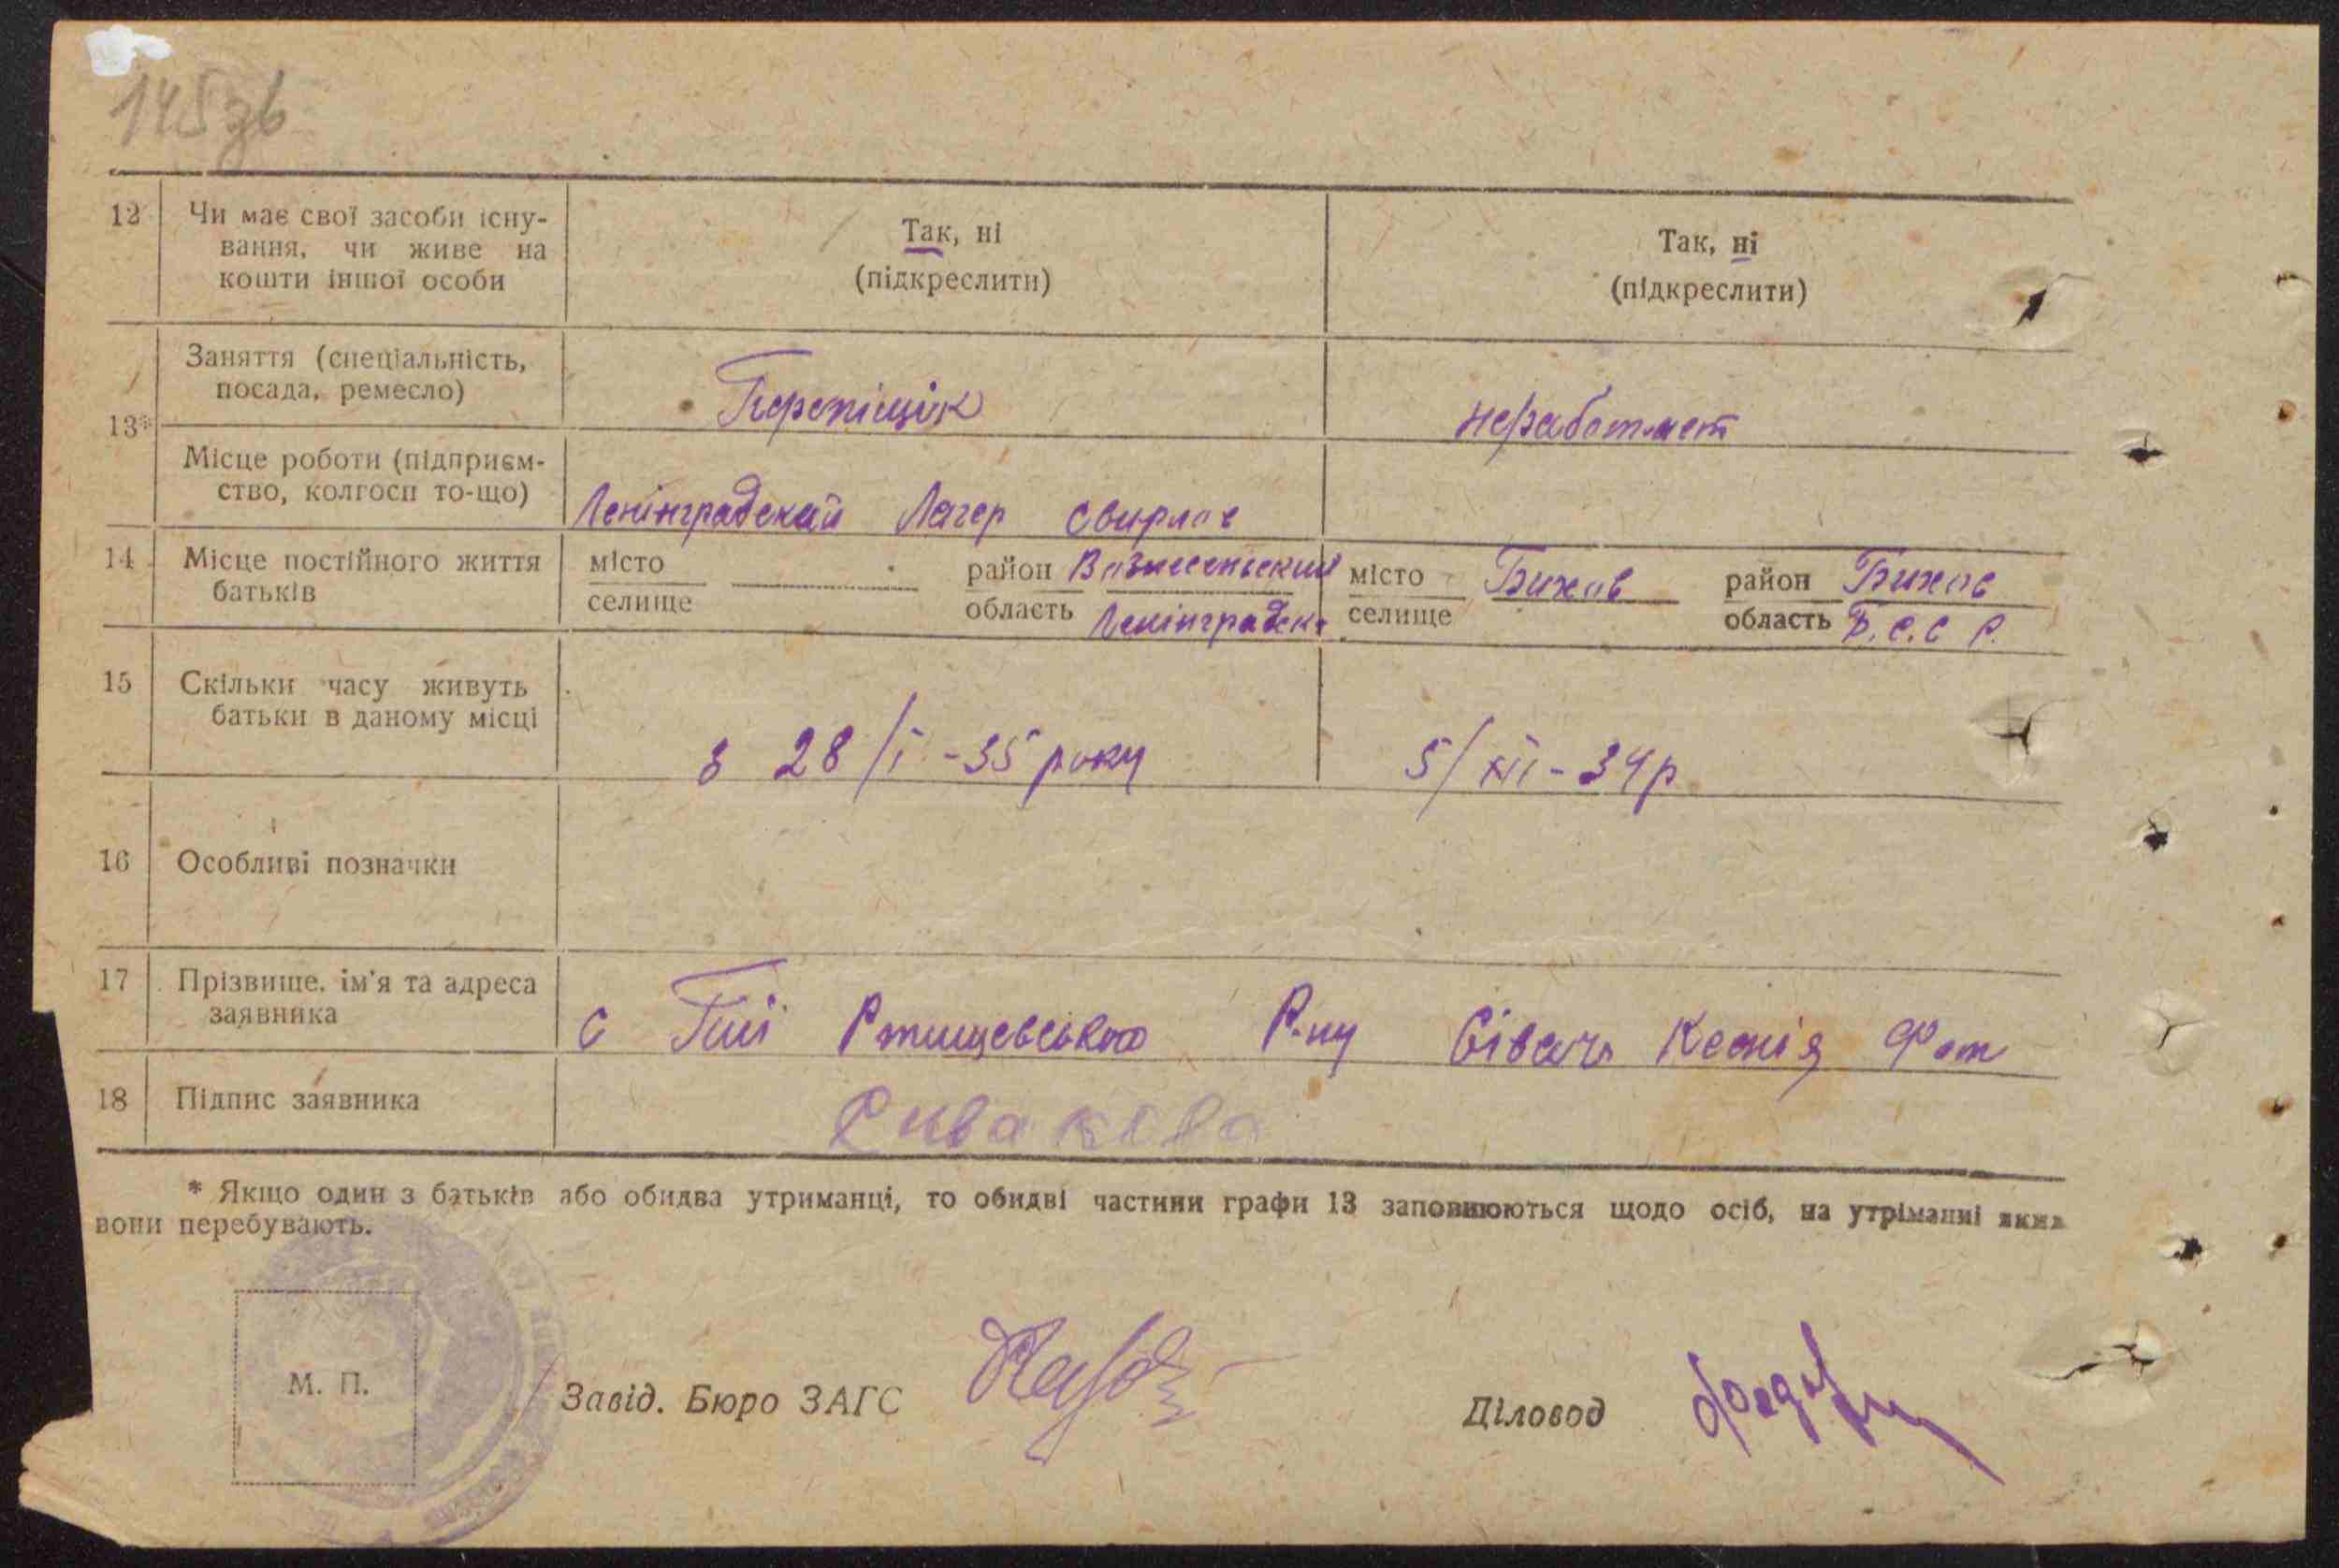 145зв
12 Чи має свої засоби існу-
вання, чи живе на
кошти іншої особи
Так, ні
(підкреслити)
Так, ні
(підкреслити)
13*
Заняття (спеціальність,
посада, ремесло)
неработает
Місце роботи (підприєм-
ство, колгосп то-що)
Ленінградский Лагер
14 Місце постійного життя
батьків
місто
селище
район Вознесеньский
область Ленінградск
місто Бихов
селище
район Бихов
область Б.С.С.Р.
15 Скільки часу живуть
батьки в даному місці
з 28/І-35 року
5/XII-34р
16 Особливі позначки
17 Прізвище, ім'я та адреса
заявника
с Пиї Ртищевського Р-ну Сівач Ксенія
18 Підпис заявника
* Якщо один з батьків або обидва утриманці, то обидві частини графи 13 заповнюються щодо осіб, на утріманні яких
вони перебувають.
М. П.
Завід. Бюро ЗАГС
Діловод